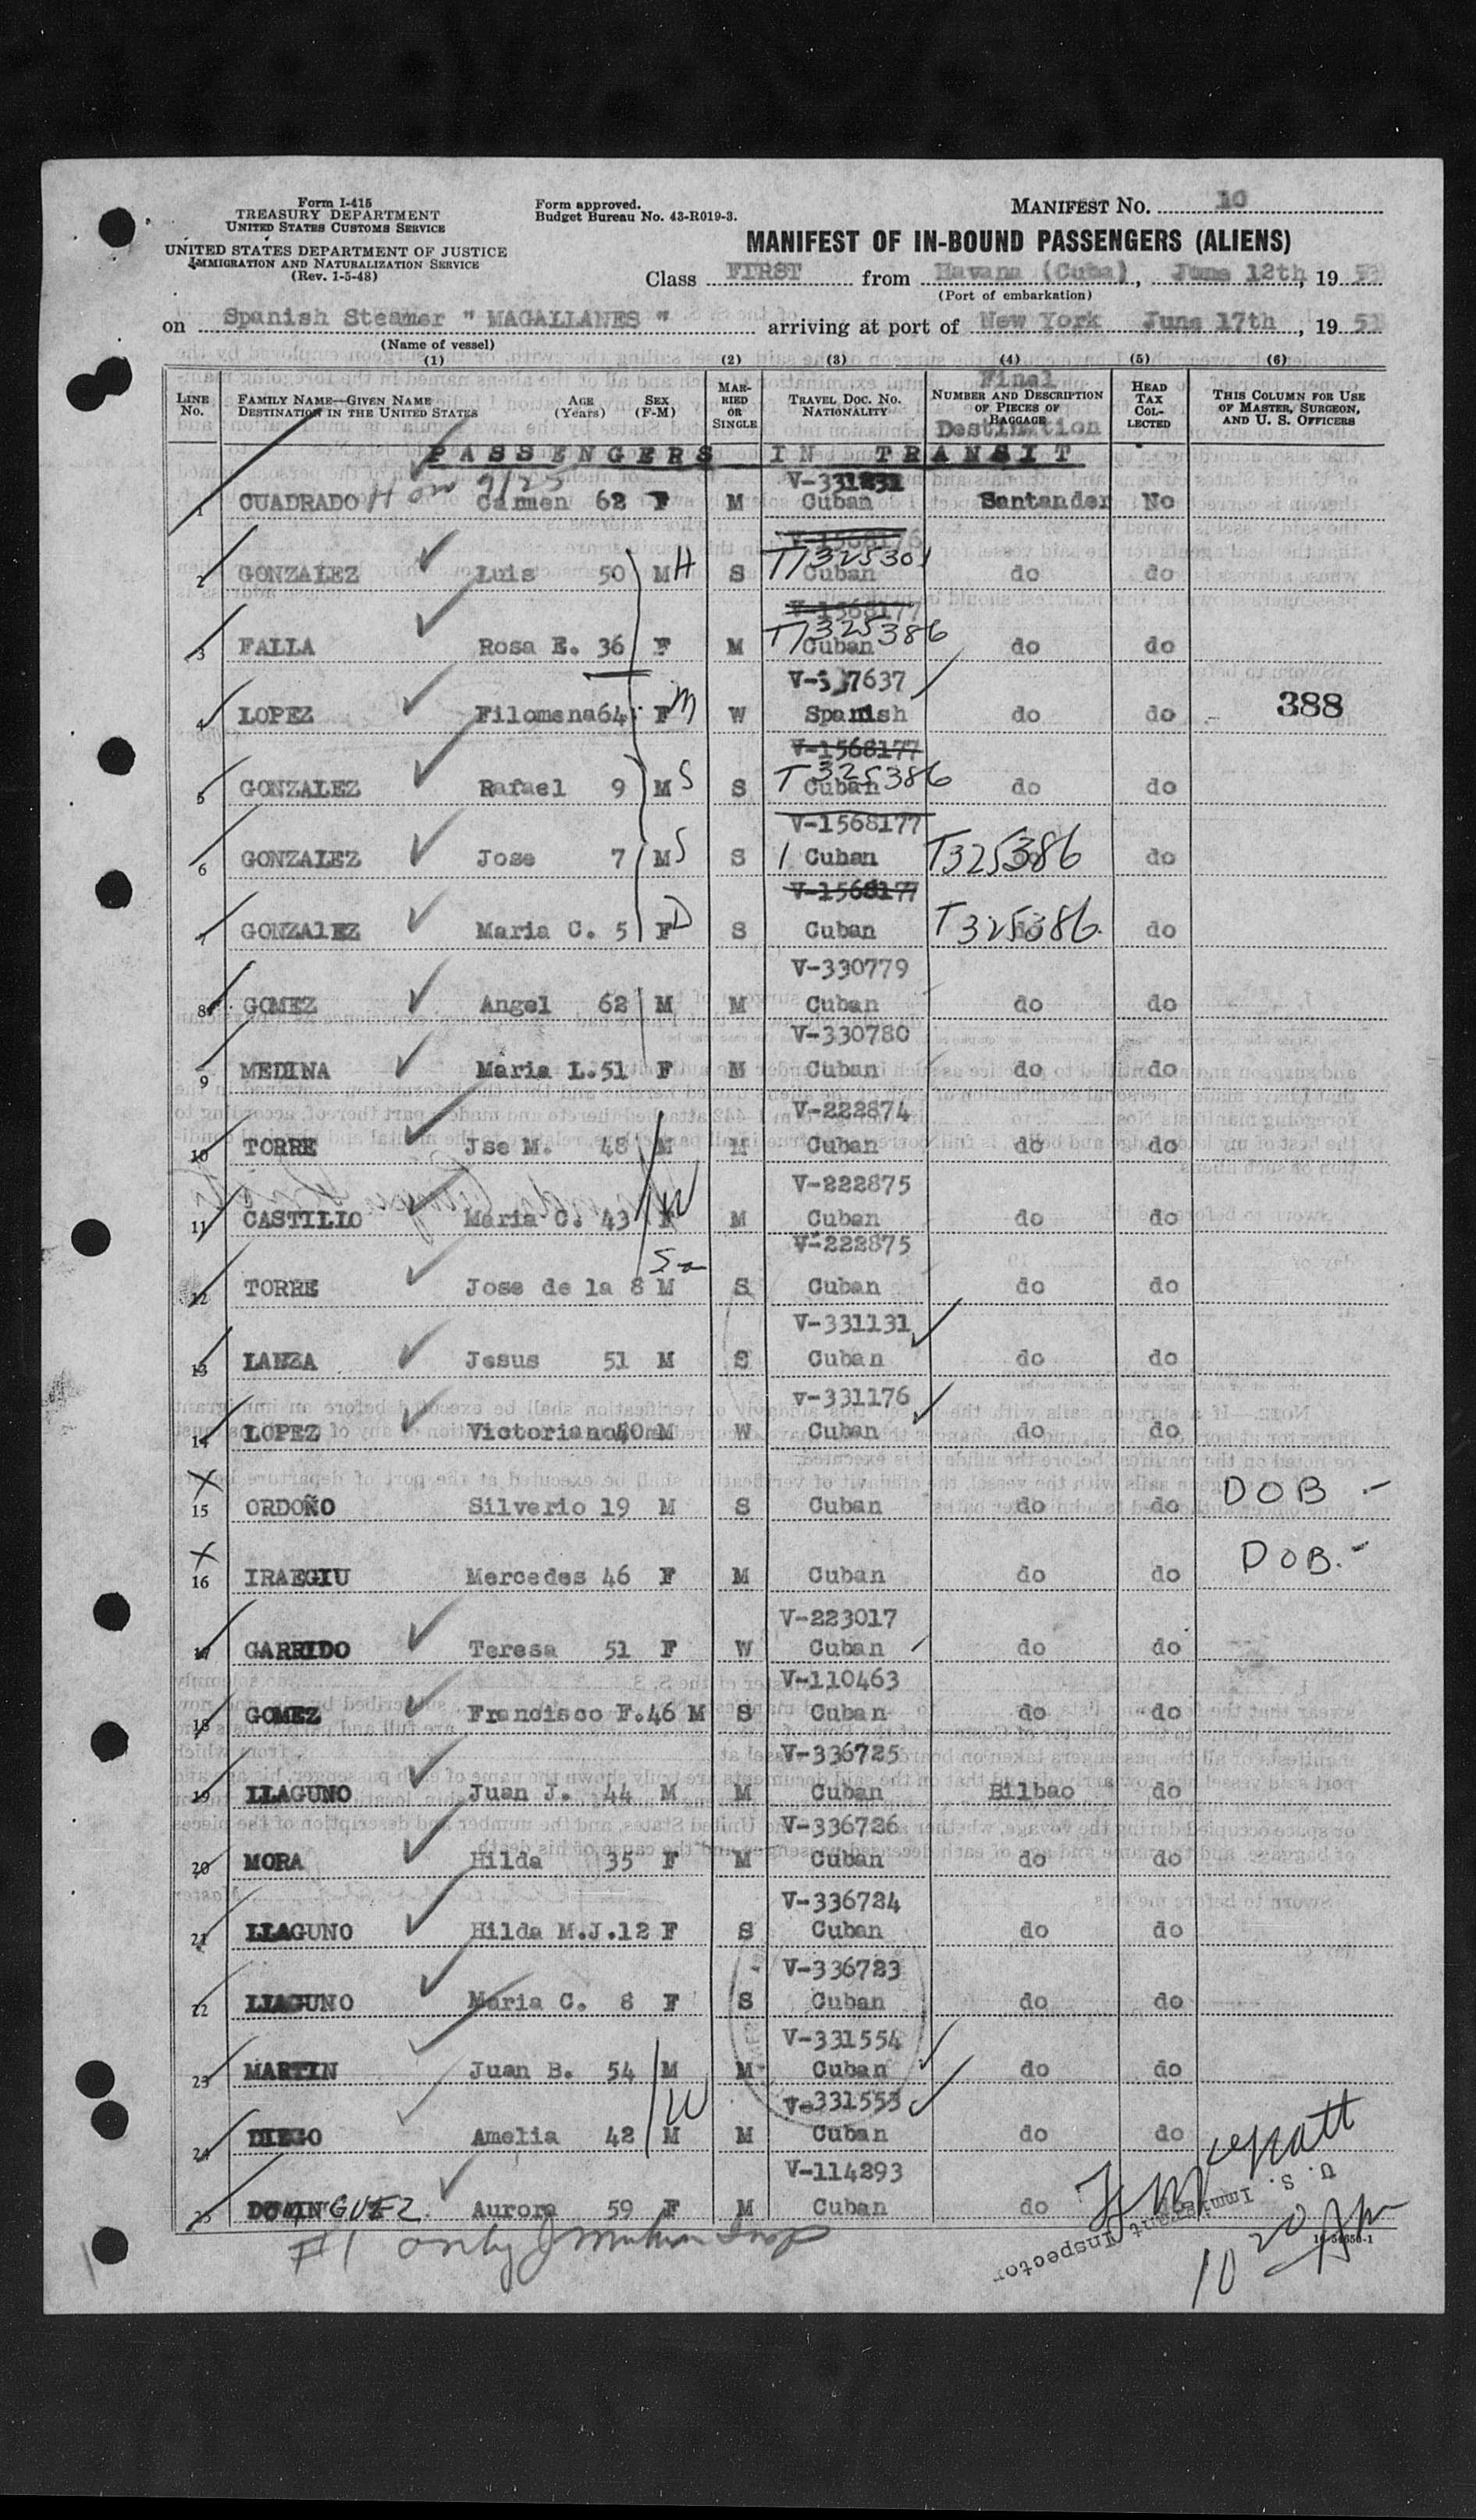 Form I-415
TREASURY DEPARTMENT
UNITED STATES CUSTOMS SERVICE
UNITED STATES DEPARTMENT OF JUSTICE
IMMIGRATION AND NATURALIZATION SERVICE
(Rev. 1-5-48)
Form approved.
Budget Bureau No. 43-R019-3.
MANIFEST No. 10
MANIFEST OF IN-BOUND PASSENGERS (ALIENS)
Class FIRST from Havana (Cuba), June 12th, 19
(Port of embarkation)
on Spanish Steamer " MAGALLANES " arriving at port of New York June 17th, 1951
(Name of vessel)
(1) (2) (3) (4) (5) (6)
LINE No. FAMILY NAME—GIVEN NAME DESTINATION IN THE UNITED STATES AGE (Years) SEX (F-M) MARRIED OR SINGLE TRAVEL DOC. NO. NATIONALITY NUMBER AND DESCRIPTION OF PIECES OF BAGGAGE Final Destination HEAD TAX COLLECTED THIS COLUMN FOR USE OF MASTER, SURGEON, AND U. S. OFFICERS
PASSENGERS IN TRANSIT
V-331231
1 CUADRADO Carmen 62 F M Cuban Santander No
V-1568176
T1325301
2 GONZALEZ Luis 50 M H S Cuban do do
V-1568177
T1325386
3 FALLA Rosa E. 36 F M Cuban do do
V-337637
4 LOPEZ Filomena 64 F M W Spanish do do 388
V-1568177
T325386
5 GONZALEZ Rafael 9 M S S Cuban do do
V-1568177
6 GONZALEZ Jose 7 M S S Cuban T325386 do do
V-1568177
7 GONZAlEZ Maria C. 5 F D S Cuban T325386 do do
V-330779
8 GOMEZ Angel 62 M M Cuban do do
V-330780
9 MEDINA Maria L. 51 F M Cuban do do
V-222874
10 TORRE Jse M. 48 M M Cuban do do
V-222875
11 CASTILLO Maria C. 43 F W M Cuban do do
V-222875
12 TORRE Jose de la 8 M S Cuban do do
V-331131
13 LANZA Jesus 51 M S Cuban do do
V-331176
14 LOPEZ Victoriano 40 M W Cuban do do
15 ORDOÑO Silverio 19 M S Cuban do do DOB -
16 IRAEGIU Mercedes 46 F M Cuban do do DOB.-
V-223017
17 GARRIDO Teresa 51 F W Cuban do do
V-110463
18 GOMEZ Francisco F. 46 M S Cuban do do
V-336725
19 LLAGUNO Juan J. 44 M M Cuban Bilbao do
V-336726
20 MORA Hilda 35 F M Cuban do do
V-336724
21 LLAGUNO Hilda M.J. 12 F S Cuban do do
V-336723
22 LLAGUNO Maria C. 8 F S Cuban do do
V-331554
23 MARTIN Juan B. 54 M M Cuban do do
V-331553
24 DIEGO Amelia 42 M W M Cuban do do
V-114293
25 DOMINGUEZ Aurora 59 F M Cuban do
U. S. Immigrant Inspector
#1 only
10 20